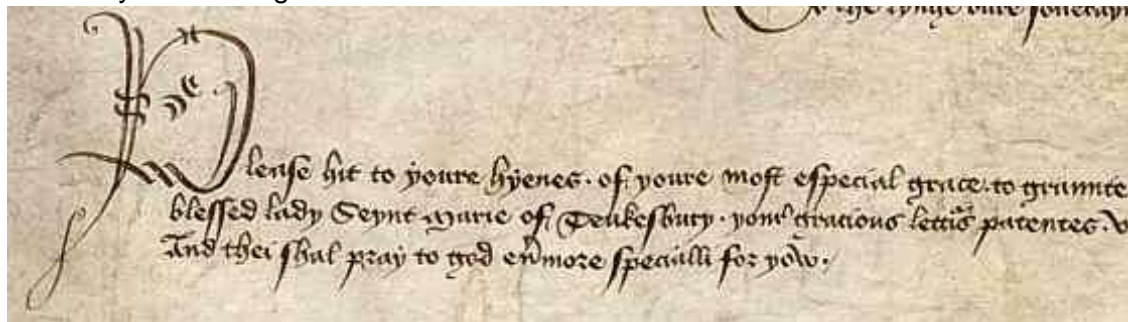 To the kynge oure souerayn
Please hit to youre hyenes · of youre most especial grace · to graunte
blessed lady Seynt Marie of Teukesbury · your gracious lettrs patentes ·
And thei shal pray to god eũmore specialli for yow ·